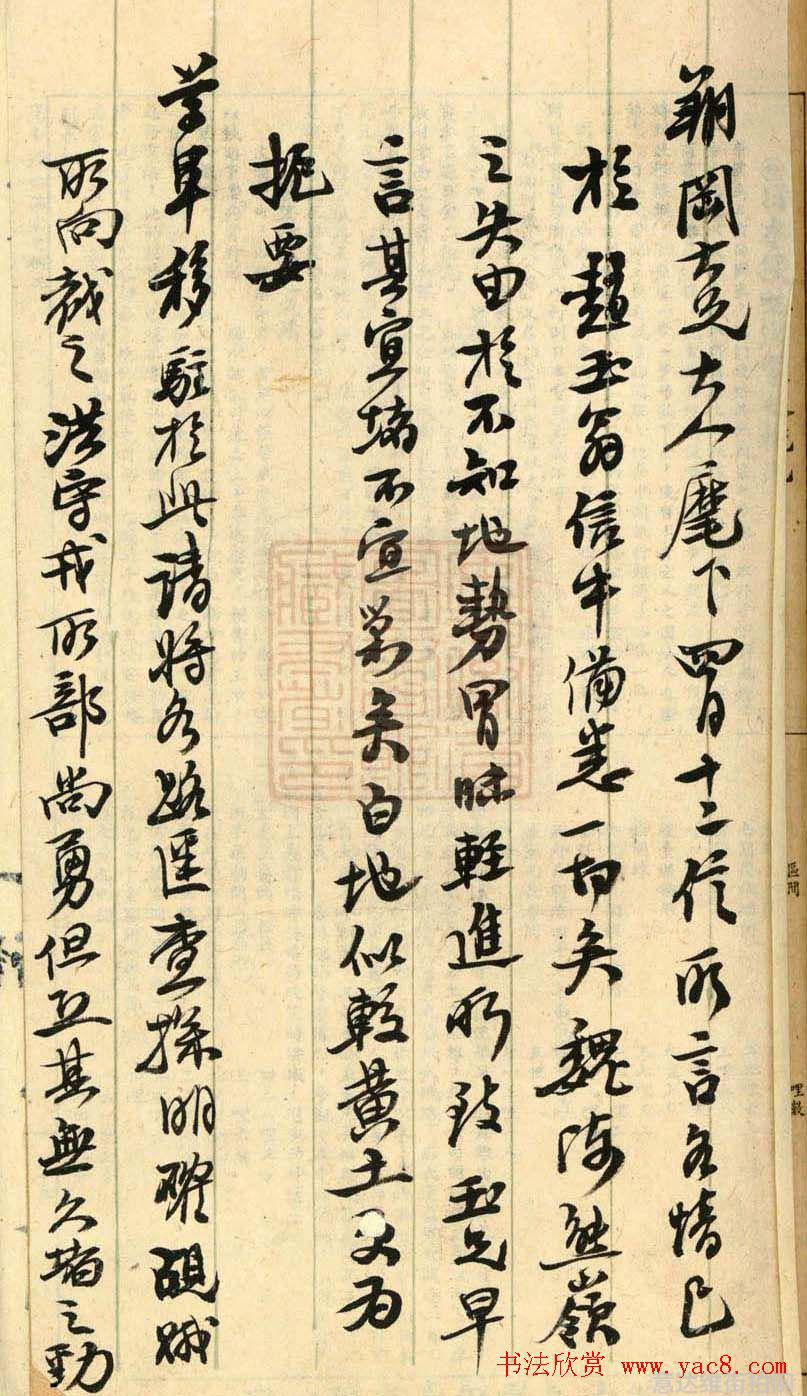 朗岡大兄大人麾下四月十二信所言各情已
於趙玉翁信中備悉一切矣魏灣熊嶺
之失由於不知地勢冒昧輕進所致玉兄早
言其宜堵不宜剿矣白地似較黃土又為
扼要
尊軍移駐於此請將各路匪查探明確覘賊
所向截之洪守戎所部尚勇但立其無久堵之勁
書法欣賞 www.yac8.com
區間